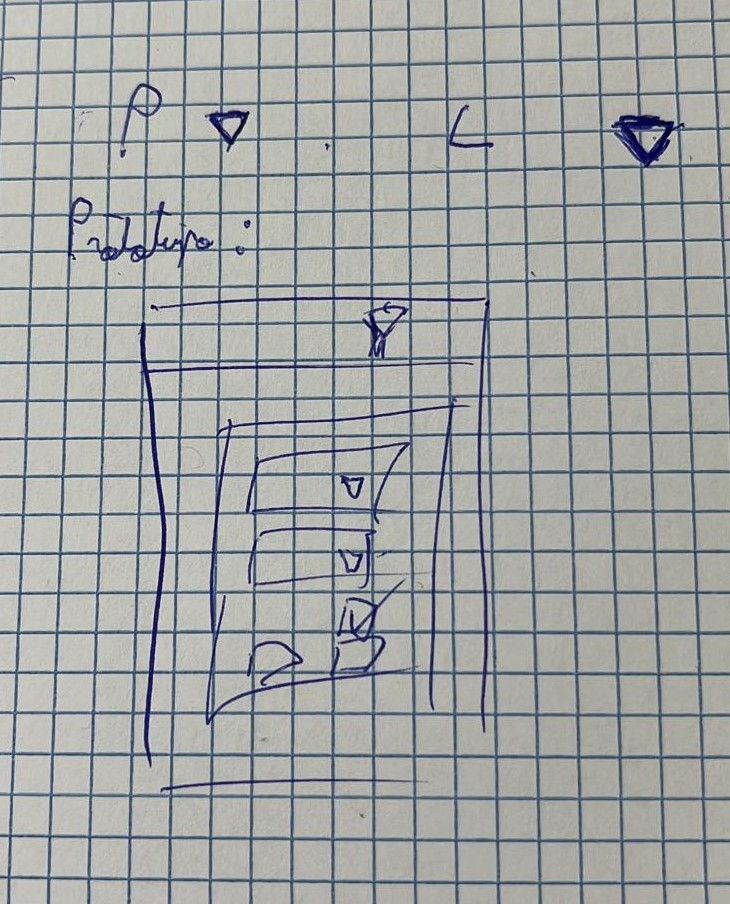 P ▽ . L ▼
Prototipo :